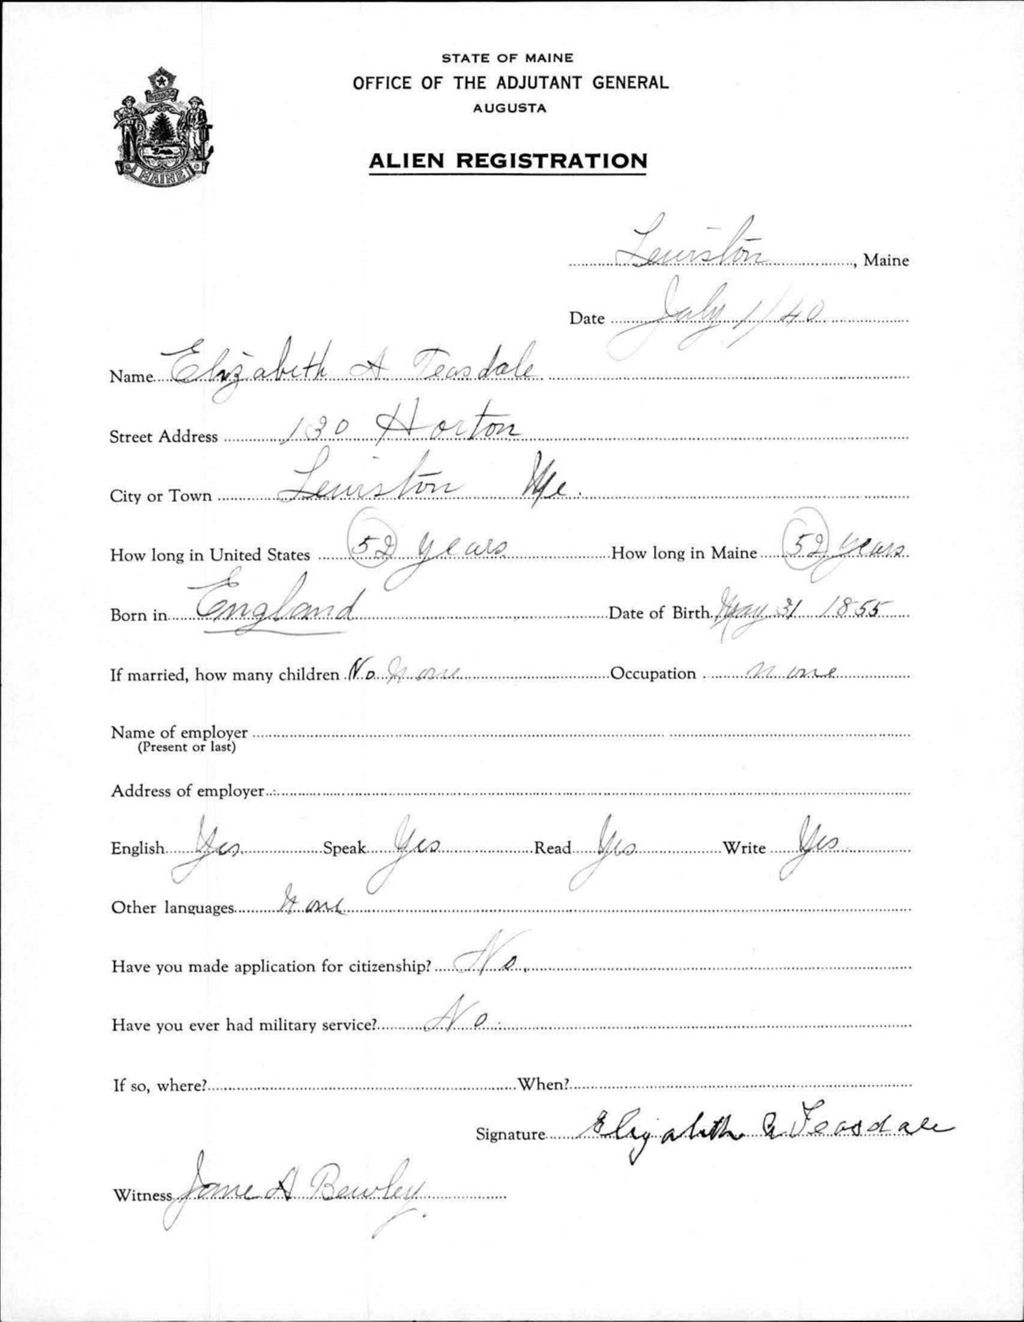 STATE OF MAINE
OFFICE OF THE ADJUTANT GENERAL
AUGUSTA
ALIEN REGISTRATION
MAINE
Lewiston, Maine
Date July 1/40
Name Elizabeth A Teasdale
Street Address 130 Horton
City or Town Lewiston Me.
How long in United States 52 years How long in Maine 52 years
Born in England Date of Birth May 31 1855
If married, how many children No None Occupation none
Name of employer
(Present or last)
Address of employer
English Yes Speak Yes Read Yes Write Yes
Other languages None
Have you made application for citizenship? No.
Have you ever had military service? No
If so, where? When?
Signature Elizabeth A Teasdale
Witness Jane A Bewley.